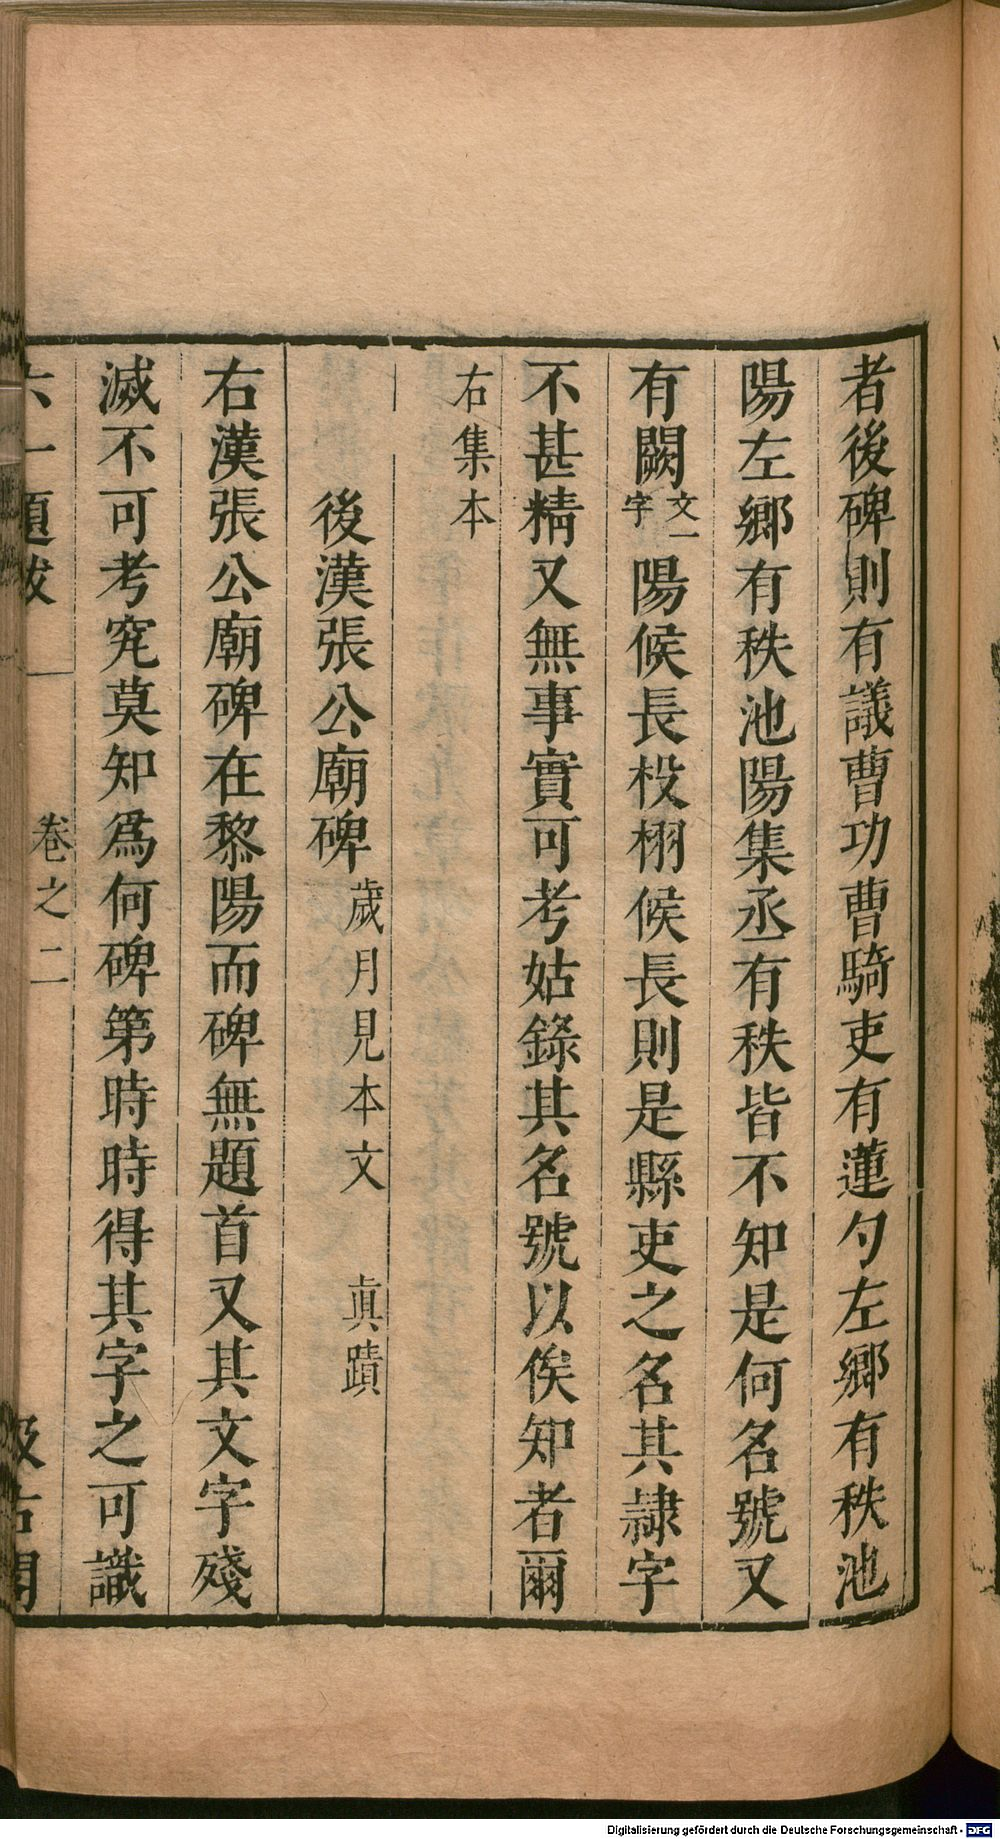 者後碑則有議曹功曹騎吏有蓮勺左鄉有秩池
陽左鄉有秩池陽集丞有秩皆不知是何名號又
有闕文一字陽候長杸栩候長則是縣吏之名其隷字
不甚精又無事實可考姑錄其名號以俟知者爾
右集本
後漢張公廟碑歲月見本文 眞蹟
右漢張公廟碑在黎陽而碑無題首又其文字殘
滅不可考究莫知爲何碑第時時得其字之可識
六一題跋 卷之二 汲古閣
Digitalisierung gefördert durch die Deutsche Forschungsgemeinschaft - DFG